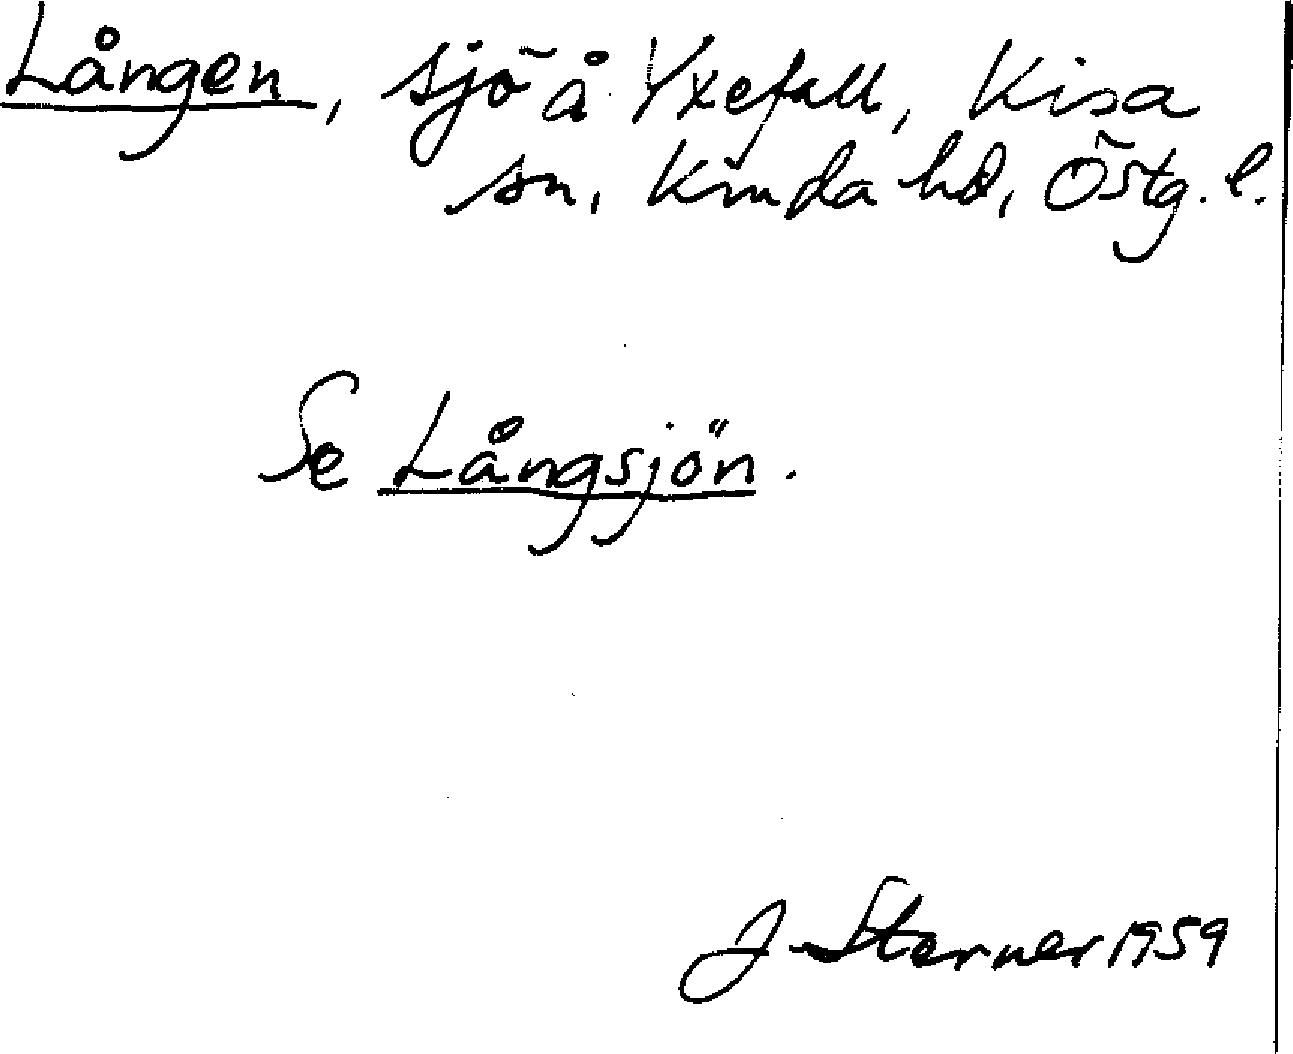 Lången, sjö å Yxefall, Kisa
sn, Kinda hd, Östg. l.
Se Långsjön.
J Sterner 1959